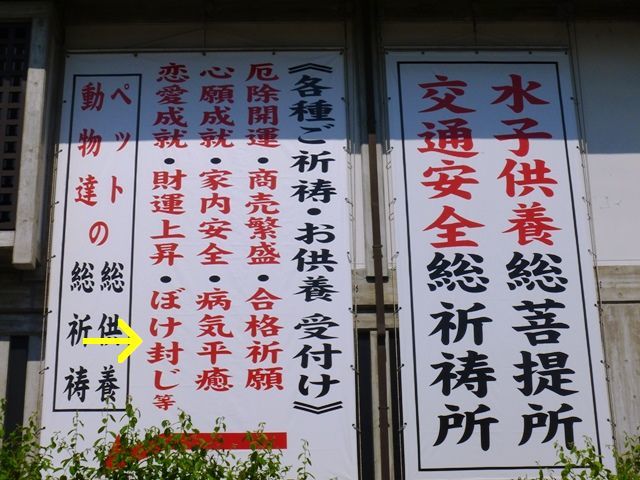 水子供養総菩提所
交通安全総祈祷所
《各種ご祈祷・お供養 受付け》
厄除開運・商売繁盛・合格祈願
心願成就・家内安全・病気平癒
恋愛成就・財運上昇・ぼけ封じ等
ペットの総供養
動物達の総祈祷